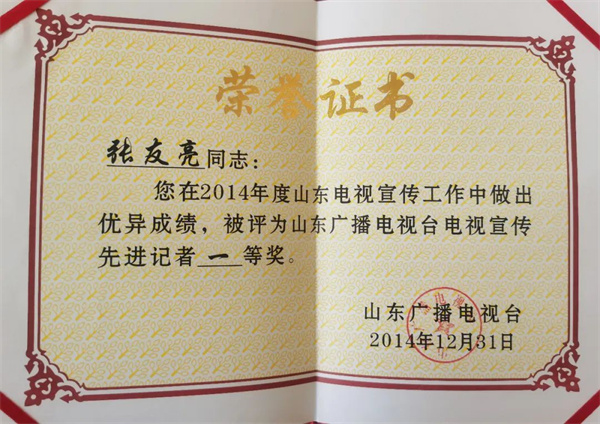 荣誉证书
张友亮同志：
您在2014年度山东电视宣传工作中做出
优异成绩，被评为山东广播电视台电视宣传
先进记者一等奖。
山东广播电视台
2014年12月31日